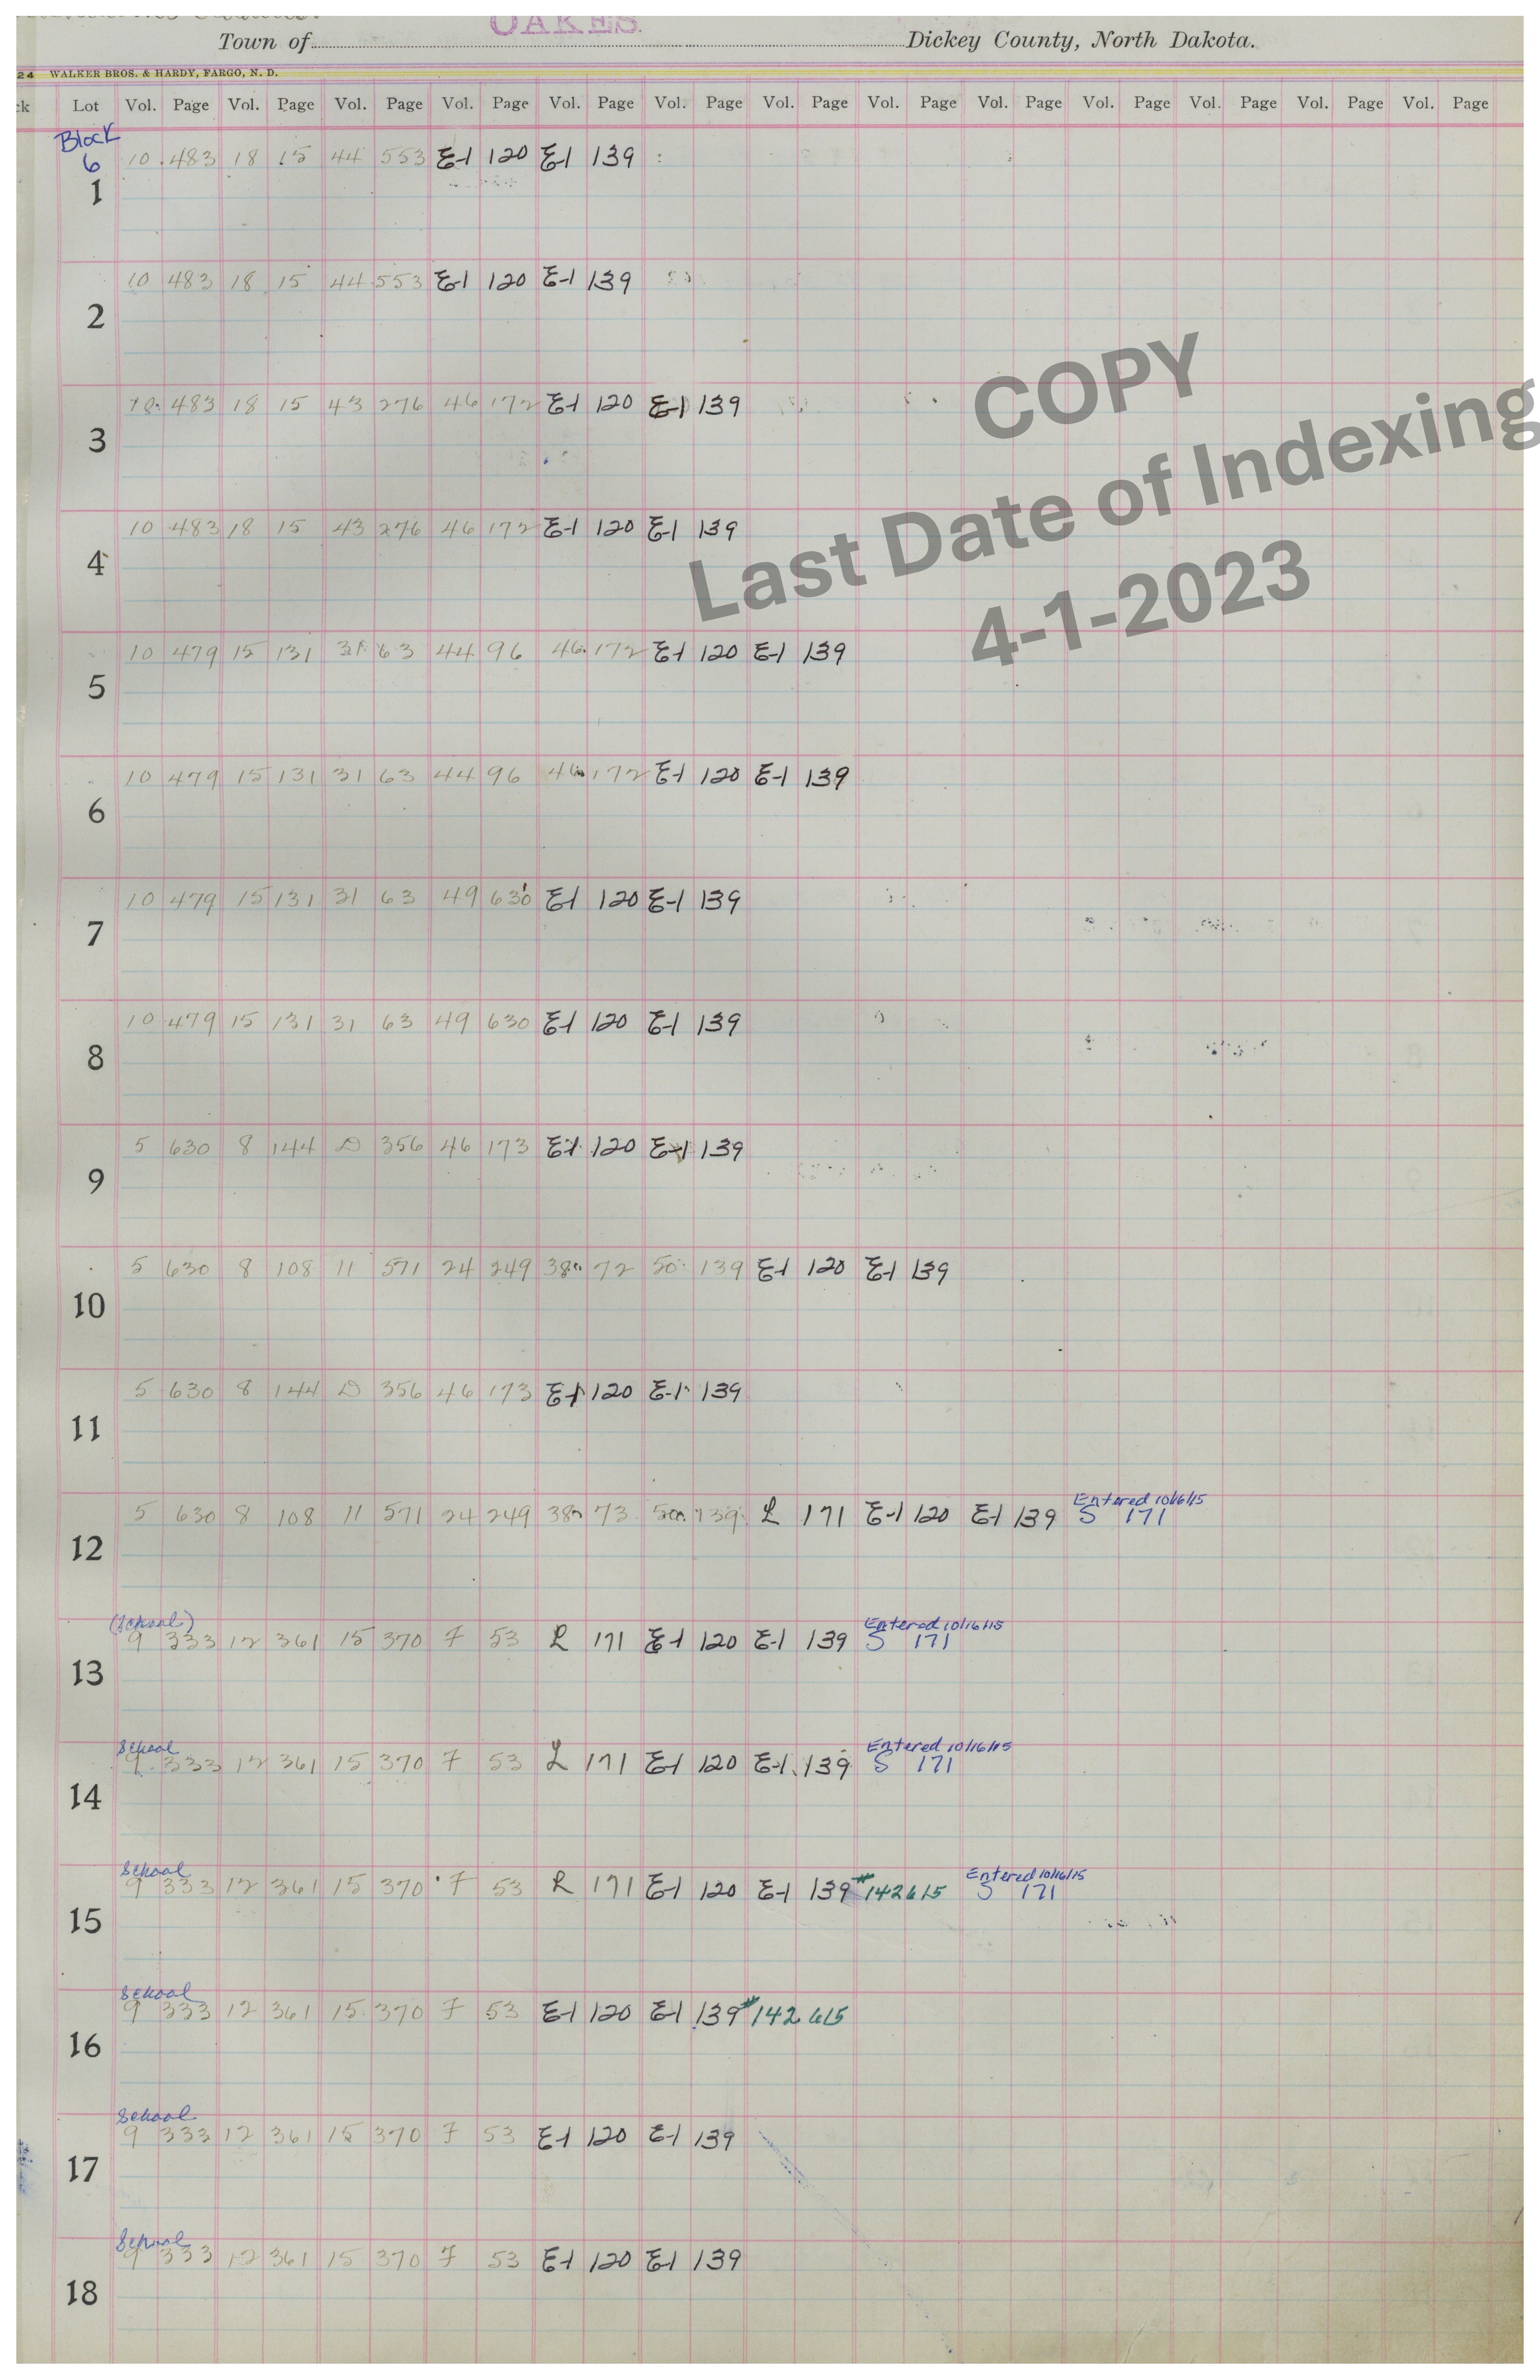 OAKES
Town of Dickey County, North Dakota.
24 WALKER BROS. & HARDY, FARGO, N. D.
ck Lot Vol. Page Vol. Page Vol. Page Vol. Page Vol. Page Vol. Page Vol. Page Vol. Page Vol. Page Vol. Page Vol. Page Vol. Page Vol. Page
Block
6 10 483 18 15 44 553 E-1 120 E-1 139
1
10 483 18 15 44 553 E-1 120 E-1 139
2
10 483 18 15 43 276 46 172 E-1 120 E-1 139
3
10 483 18 15 43 276 46 172 E-1 120 E-1 139
4
10 479 15 131 31 63 44 96 46 172 E-1 120 E-1 139
5
10 479 15 131 31 63 44 96 46 172 E-1 120 E-1 139
6
10 479 15 131 31 63 49 630 E-1 120 E-1 139
7
10 479 15 131 31 63 49 630 E-1 120 E-1 139
8
5 630 8 144 D 356 46 173 E-1 120 E-1 139
9
5 630 8 108 11 571 24 249 38 72 50 139 E-1 120 E-1 139
10
5 630 8 144 D 356 46 173 E-1 120 E-1 139
11
Entered 10/16/15
5 630 8 108 11 571 24 249 38 73 50 139 L 171 E-1 120 E-1 139 S 171
12
(School) Entered 10/16/15
9 333 12 361 15 370 7 53 L 171 E-1 120 E-1 139 S 171
13
School Entered 10/16/15
9 333 12 361 15 370 7 53 L 171 E-1 120 E-1 139 S 171
14
School Entered 10/16/15
9 333 12 361 15 370 7 53 L 171 E-1 120 E-1 139 #142615 S 171
15
School
9 333 12 361 15 370 7 53 E-1 120 E-1 139 #142615
16
School
9 333 12 361 15 370 7 53 E-1 120 E-1 139
17
School
9 333 12 361 15 370 7 53 E-1 120 E-1 139
18
COPY
Last Date of Indexing
4-1-2023